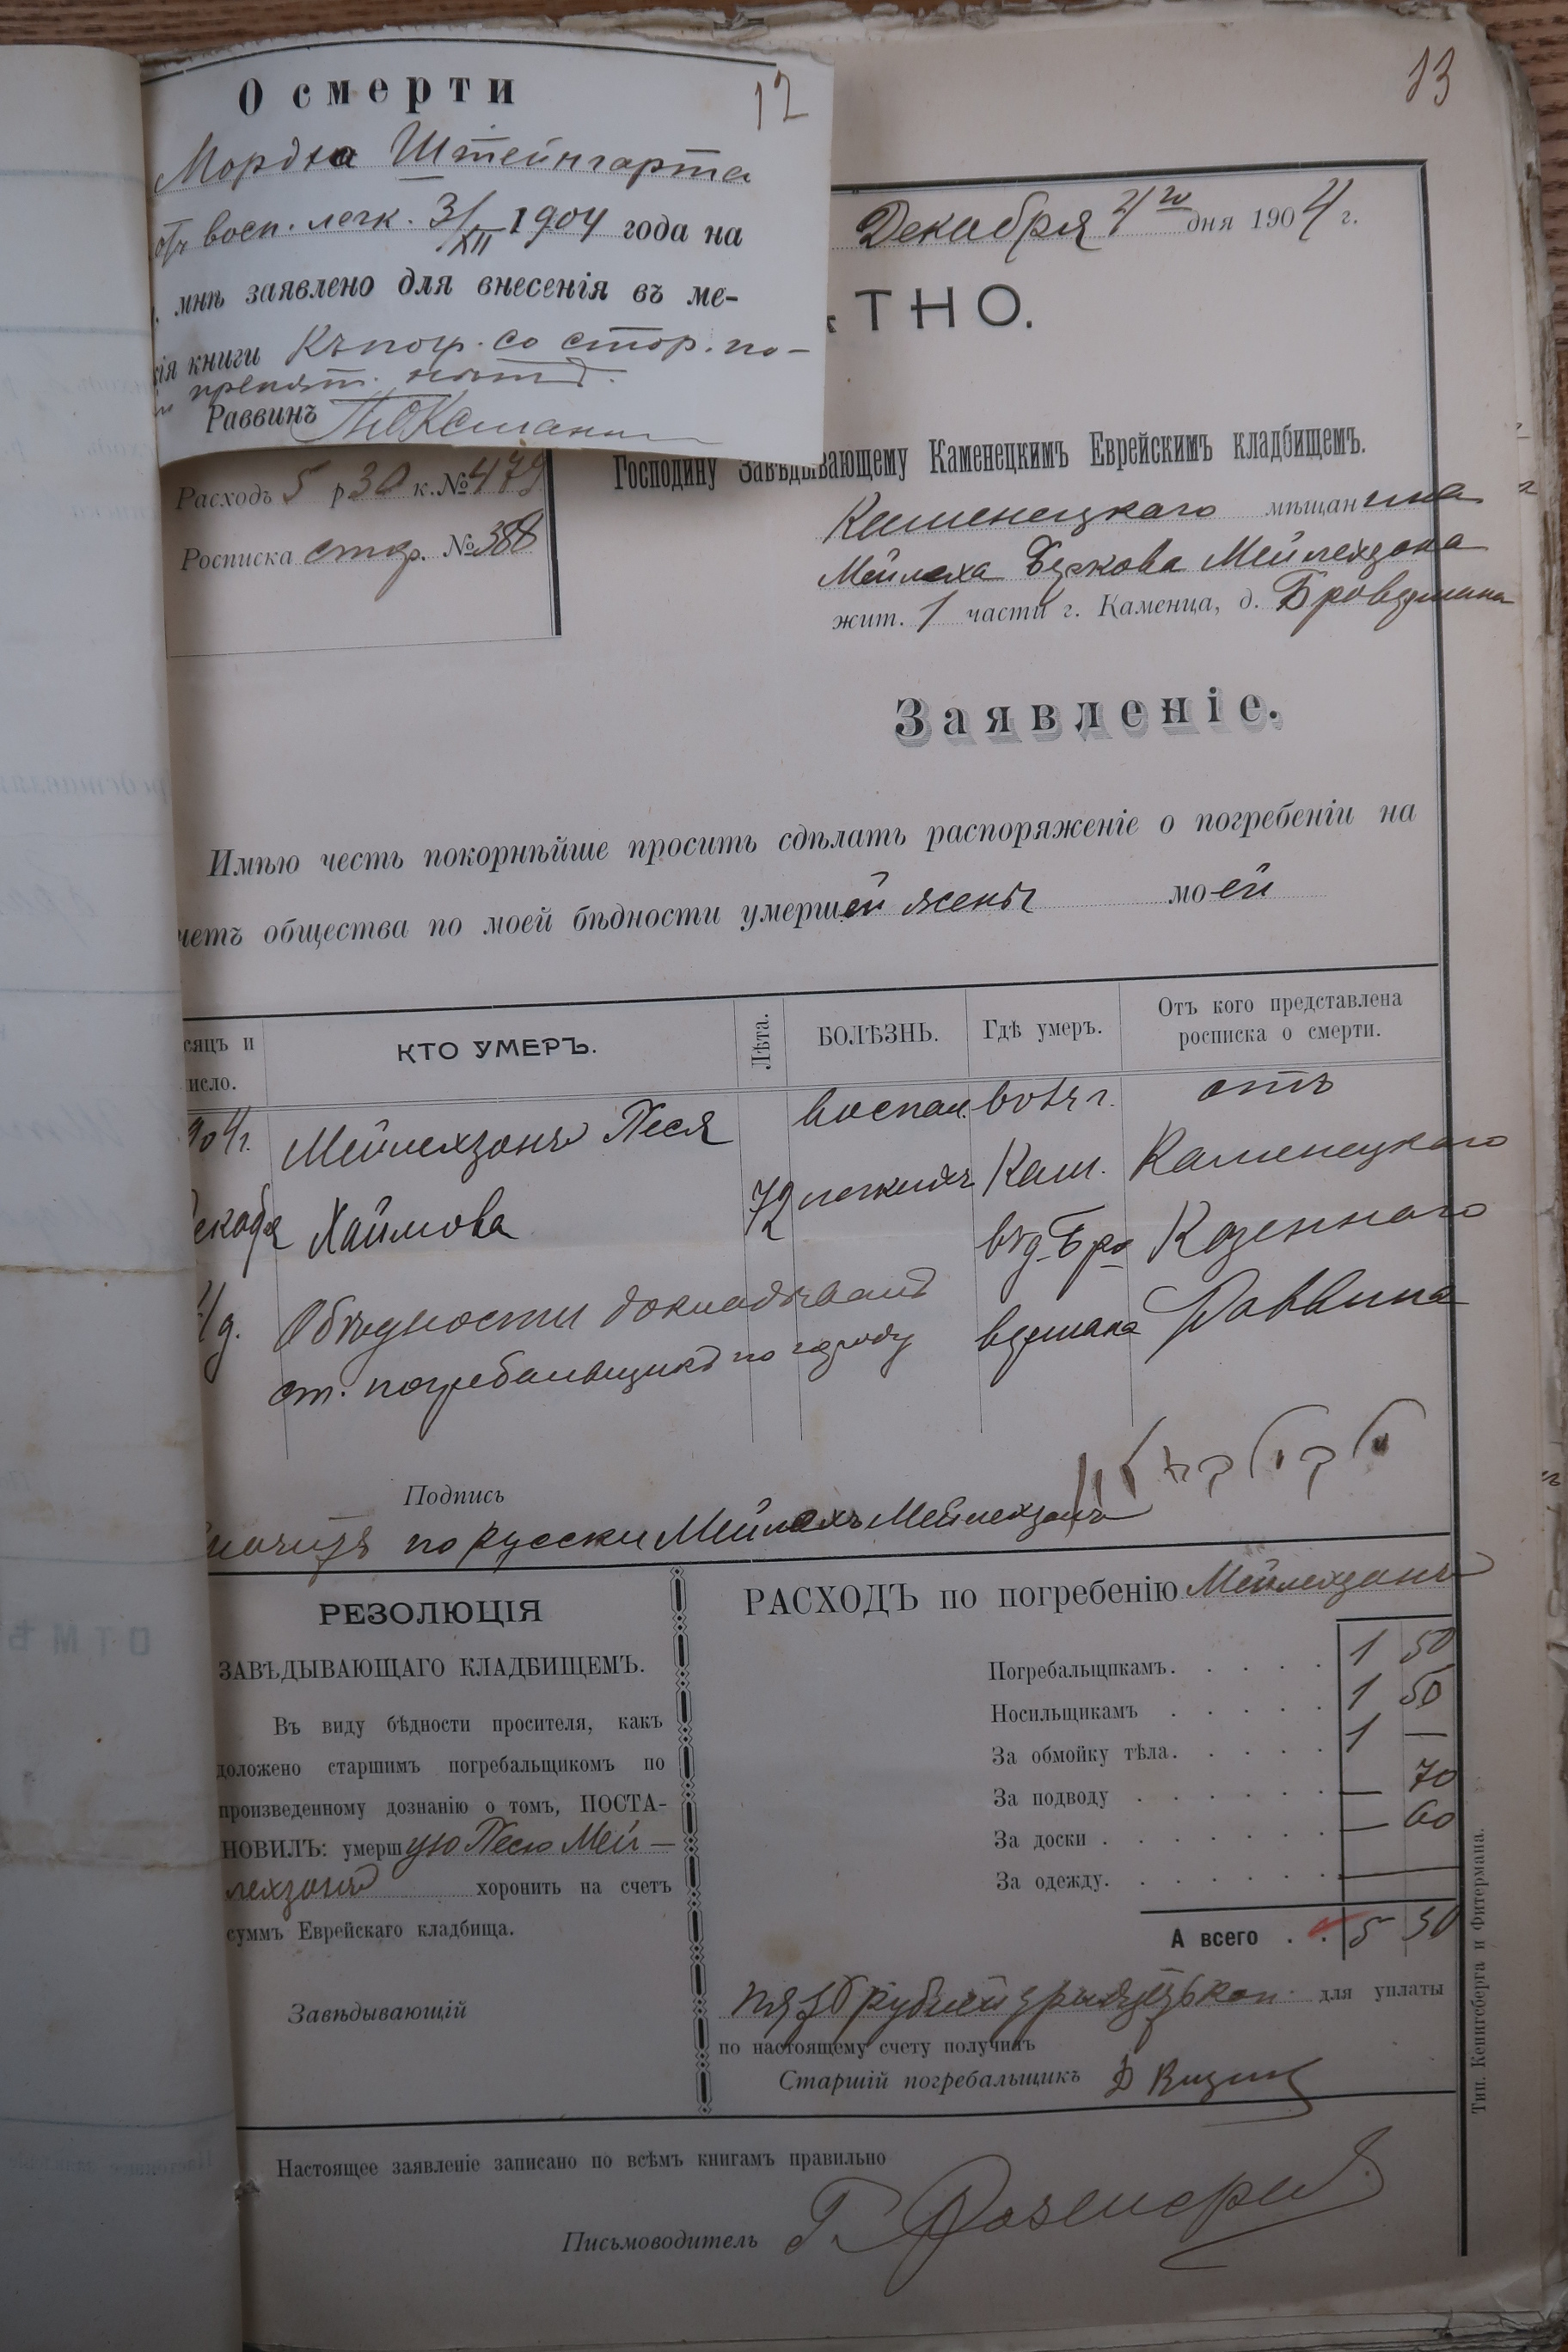 О смерти
12
Мордка Штейнгарта
отъ восп. легк. 3/XII 1904 года на
мнѣ заявлено для внесенія въ ме-
кія книги Къ погр. со стор. по-
препят. нѣтъ.
Раввинъ
13
Декабря 4го дня 1904 г.
ТНО.
Расходъ 5 р 30 к. № 479
Росписка стр. № 388
Господину Завѣдывающему Каменецкимъ Еврейскимъ кладбищемъ.
Каменецкаго мѣщанина
Мейлеха Беркова Мейлехзона
жит. 1 части г. Каменца, д. Бровермана
Заявленіе.
Имѣю честь покорнѣйше просить сдѣлать распоряженіе о погребеніи на
четъ общества по моей бѣдности умершей жены моей
сяцъ и исло.
КТО УМЕРЪ.
Лѣта.
БОЛѢЗНЬ.
Гдѣ умеръ.
Отъ кого представлена росписка о смерти.
904г. Мейлехзонъ Песя воспал. отъ
екабр Хаимова 72 легкихъ Кам. Каменецкаго
4д. въ д. Бро Казеннаго
О бѣдности докладывалъ вермана Раввина
ст. погребальщикъ по городу
Подпись
по русски Мейлехъ Мейлехзонъ
РЕЗОЛЮЦІЯ
ЗАВѢДЫВАЮЩАГО КЛАДБИЩЕМЪ.
Въ виду бѣдности просителя, какъ
доложено старшимъ погребальщикомъ по
произведенному дознанію о томъ, ПОСТА-
НОВИЛЪ: умершую Песю Мей-
лехзонъ хоронить на счетъ
суммъ Еврейскаго кладбища.
Завѣдывающій
РАСХОДЪ по погребенію Мейлехзонъ
Погребальщикамъ. . . . . 1 50
Носильщикамъ . . . . . 1 50
За обмойку тѣла. . . . . 1 —
За подводу . . . . . . — 70
За доски . . . . . . . — 60
За одежду. . . . . . . —
А всего . . 5 30
пять рублей тридцать коп. для уплаты
по настоящему счету получилъ
Старшій погребальщикъ
Настоящее заявленіе записано по всѣмъ книгамъ правильно
Письмоводитель
Тип. Кенигсберга и Фитермана.